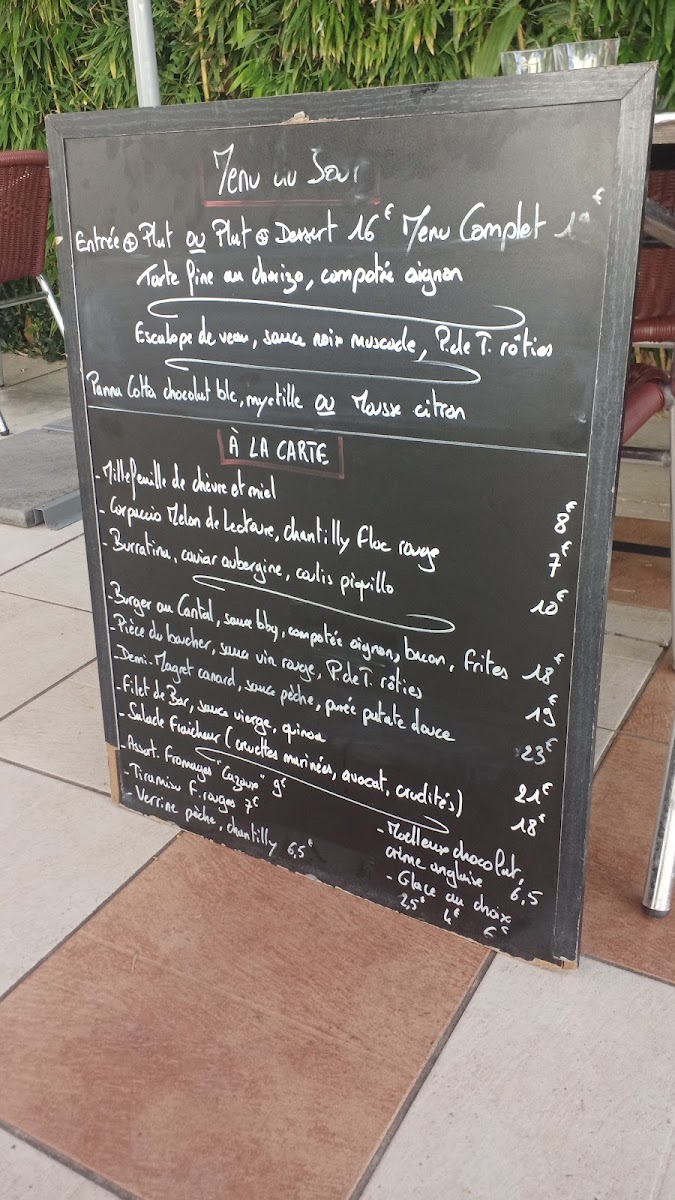 Menu du Jour
Entrée ⊕ Plat ou Plat ⊕ Dessert 16€ Menu Complet 19€
Tarte fine au chorizo, compotée oignon
Escalope de veau, sauce noix muscade, P.de T. rôties
Panna Cotta chocolat blc, myrtille ou Mousse citron
À LA CARTE
- Millefeuille de chèvre et miel 8€
- Carpaccio Melon de Lectoure, chantilly Floc rouge 7€
- Burratina, caviar aubergine, coulis piquillo 10€
- Burger au Cantal, sauce bbq, compotée oignon, bacon, frites 18€
- Pièce du boucher, sauce vin rouge, P.de T. rôties 19€
- Demi-Magret canard, sauce pêche, purée patate douce 23€
- Filet de Bar, sauce vierge, quinoa 21€
- Salade Fraîcheur (crevettes marinées, avocat, crudités) 18€
- Assort. Fromages "Cazaux" 9€
- Tiramisu F.rouges 7€
- Verrine pêche, chantilly 6,5€
- Moelleux chocolat,
crème anglaise 6,5
- Glace au choix
2,5€ 4€ 6€